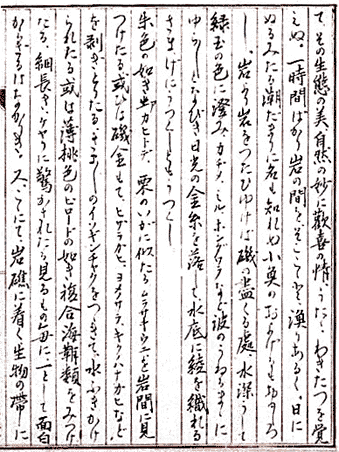 て、その生態の美、自然の妙に歓喜の情うたゝわきたつを覚
えぬ。一時間ばかり岩の間を、そここゝと漁りあるく。日に
ぬるみたる潮だまりに名も知れぬ小魚のおよげるもおもしろ
し。岩より岩をつたひゆけば磯の盡くる處、水深うして
緑玉の色に澄み、カヂメ、ミル、ホンダワラなど波のうねるまゝに
ゆらゆらとなびき、日光の金糸を落して、水底に綾を織れる
さまげにうつくしともうつくし
朱色の如きヒトデ、栗のいがに似たるムラサキウニを岩間に見
つけたる、或ひは磯金もて、ヒザラガヒ、ヨメガサラ、キクノハナガヒなど
を剥ぎとりたる、さましのイソギンチャクをつきて、水ふきかけ
られたる、或は薄桃色のビロードの如き複合海鞘類をみつけ
たる、細長きゴカイに驚かされたる、見るもの毎に一として面白
からざるはなかりき。又、こゝにて岩礁に着く生物の帯に